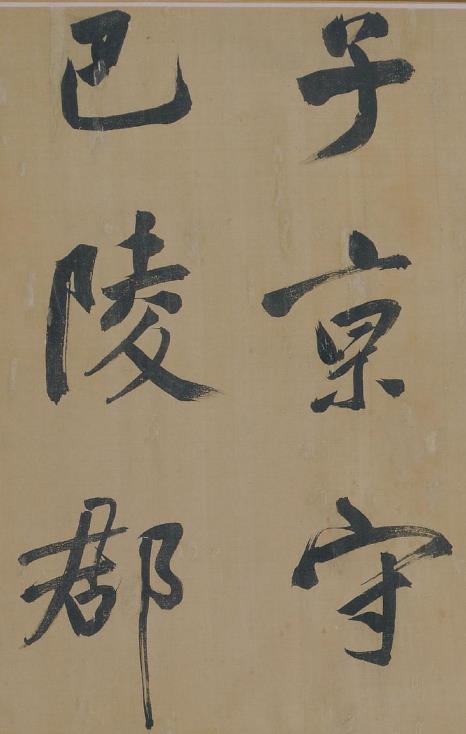 子京守
巴陵郡